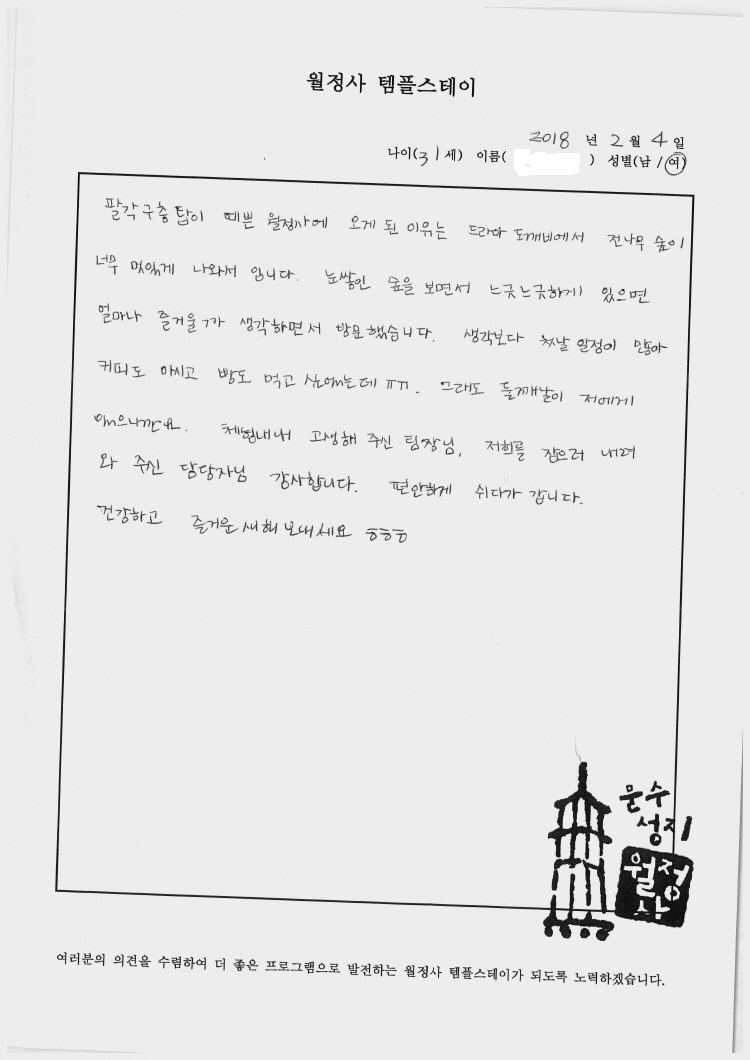 월정사 템플스테이
2018 년 2 월 4 일
나이(31세) 이름( ) 성별(남 / 여)
팔각구층탑이 예쁜 월정사에 오게 된 이유는 드라마 도깨비에서 전나무 숲이
너무 멋있게 나와서 입니다. 눈쌓인 숲을 보면서 느긋느긋하게 있으면
얼마나 즐거울가 생각하면서 방문했습니다. 생각보다 첫날 일정이 많아
커피도 마시고 빵도 먹고 싶었는데 ㅠㅠ. 그래도 둘째날이 저에게
있으니까요. 체험내내 고생해 주신 팀장님, 저희를 잡으러 내려
와 주신 담당자님 감사합니다. 편안하게 쉬다가 갑니다.
건강하고 즐거운 새해 보내세요 ㅎㅎㅎ
문수
성지
월정
사
여러분의 의견을 수렴하여 더 좋은 프로그램으로 발전하는 월정사 템플스테이가 되도록 노력하겠습니다.